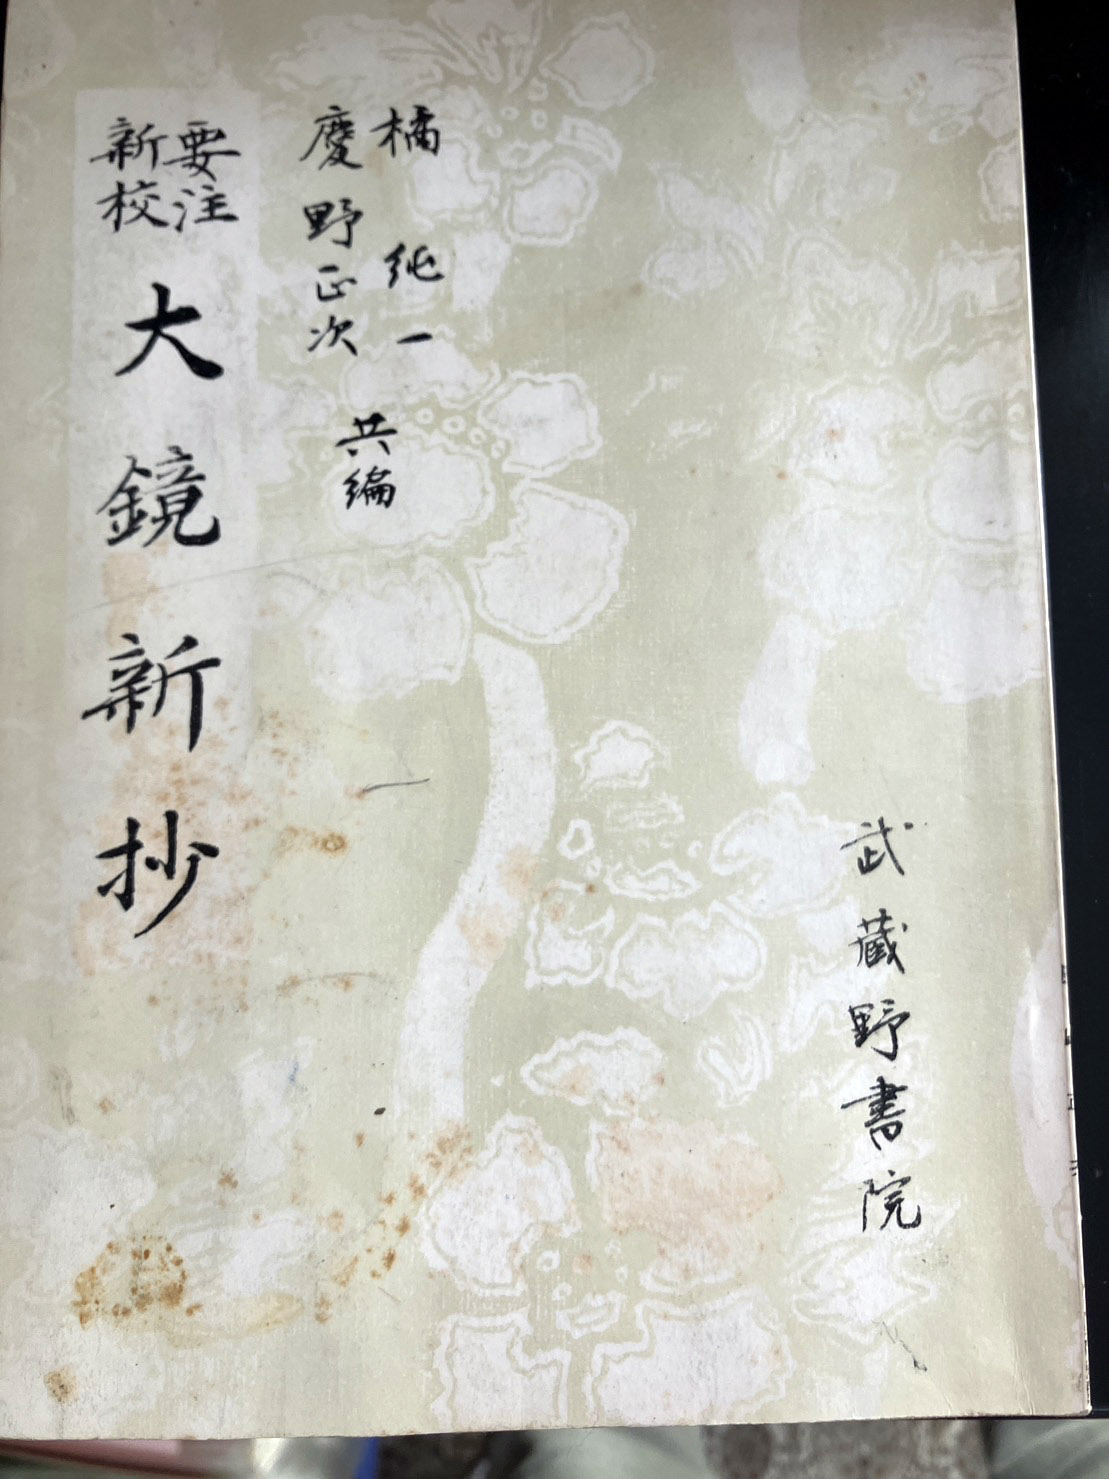 武蔵野書院
橘純一
慶野正次
共編
要注
新校
大鏡新抄